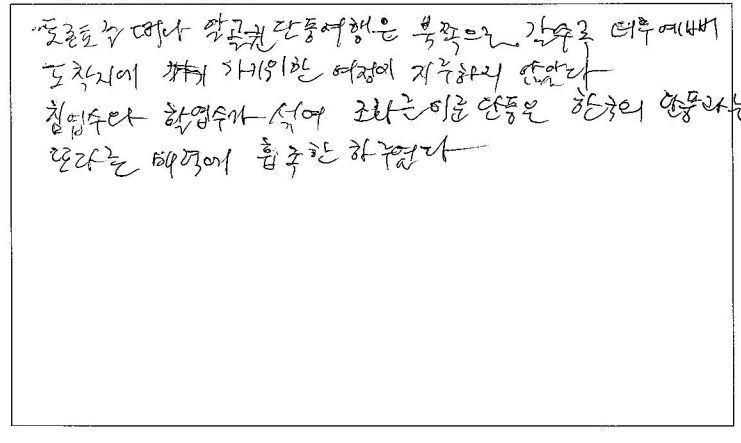 토론토를 떠나 알곤퀸 단풍여행은 북쪽으로 갈수록 더욱 예뻐
도착지에 가기위한 여정이 지루하지 않았다
침엽수와 활엽수가 섞여 조화를 이룬 단풍은 한국의 단풍과는
또다른 매력에 흡족한 하루였다